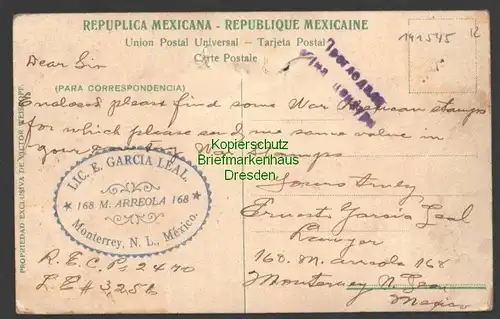 REPUPLICA MEXICANA - REPUBLIQUE MEXICAINE
Union Postal Universal - Tarjeta Postal
Carte Postale
191545
12
Dear Sir
(PARA CORRESPONDENCIA)
Enclosed please find some War Mexican stamps
for which please send me same value in
your Country War Stamps
Yours truly,
Ernesto Garcia Leal
Lawyer
168. M. Arreola 168
Monterrey N. Leon
Mexico
LIC. E. GARCIA LEAL.
* 168 M. ARREOLA 168 *
Monterrey, N. L., México.
R.E.C.P. 2470
L E # 3,256
PROPIEDAD EXCLUSIVA DE VICTOR
Kopierschutz
Briefmarkenhaus
Dresden